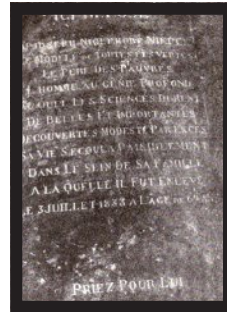 MODELE DE TOUTES LES VERTUS
LE PERE DES PAUVRES
L'HOMME AU GENIE PROFOND
A QUI LES SCIENCES DOIVENT
DE BELLES ET IMPORTANTES
DECOUVERTES MODESTE PAR EXCES
SA VIE S'ECOULA PAISIBLEMENT
DANS LE SEIN DE SA FAMILLE
A LA QUELLE IL FUT ENLEVE
LE 3 JUILLET 1833 A L'AGE DE
PRIEZ POUR LUI